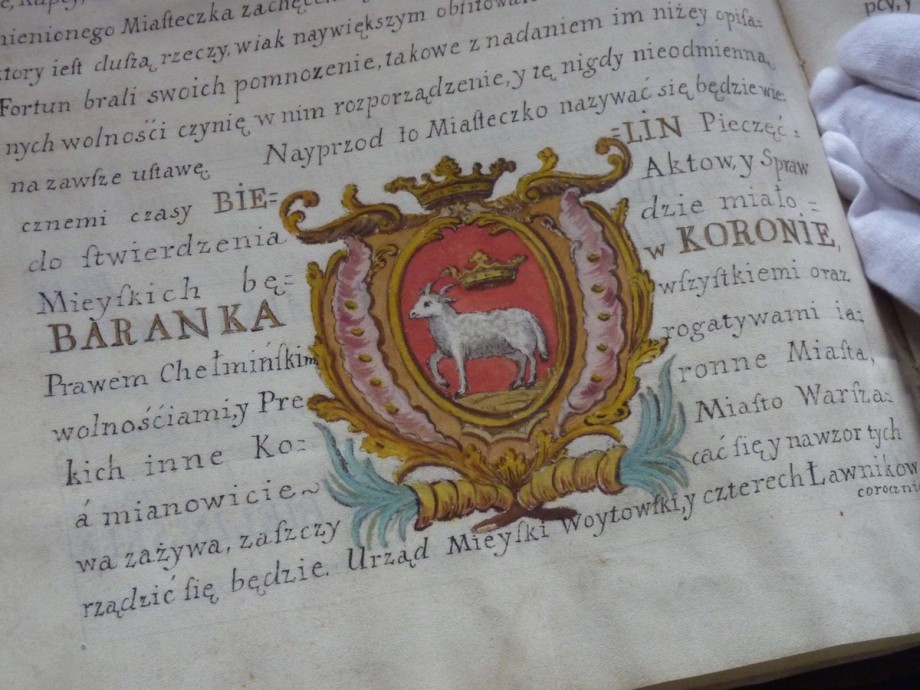 mienionego Miaſteczka
ktory ieſt duſzą rzeczy, wiak naywiększym obfitowa
Fortun brali swoich pomnozenie, takowe z nadaniem im niżey opiſa=
nych wolnośći czynię w nim rozporządzenie, y tę nigdy nieodmienną,
na zawſze uſtawę. Nayprzod to Miaſteczko nazywać się będzie wie=
cznemi czasy BIE= =LIN Pieczęć=
do ſtwierdzenia Aktow, y Spraw
Mieyſkich bę= dzie miało=
BARANKA w KORONIE,
Prawem Chełmińſkim wſzyſtkiemi oraz
wolnośćiami, y Pre rogatywami ia=
kich inne Ko= ronne Miaſta,
á mianowicie~ Miaſto Warſza=
wa zażywa, zaſzczy cać ſię y nawzor tych
rządzić ſię będzie. Urząd Mieyſki Woytowſki, y czterech Ławnikow
corocznie
pcy, y